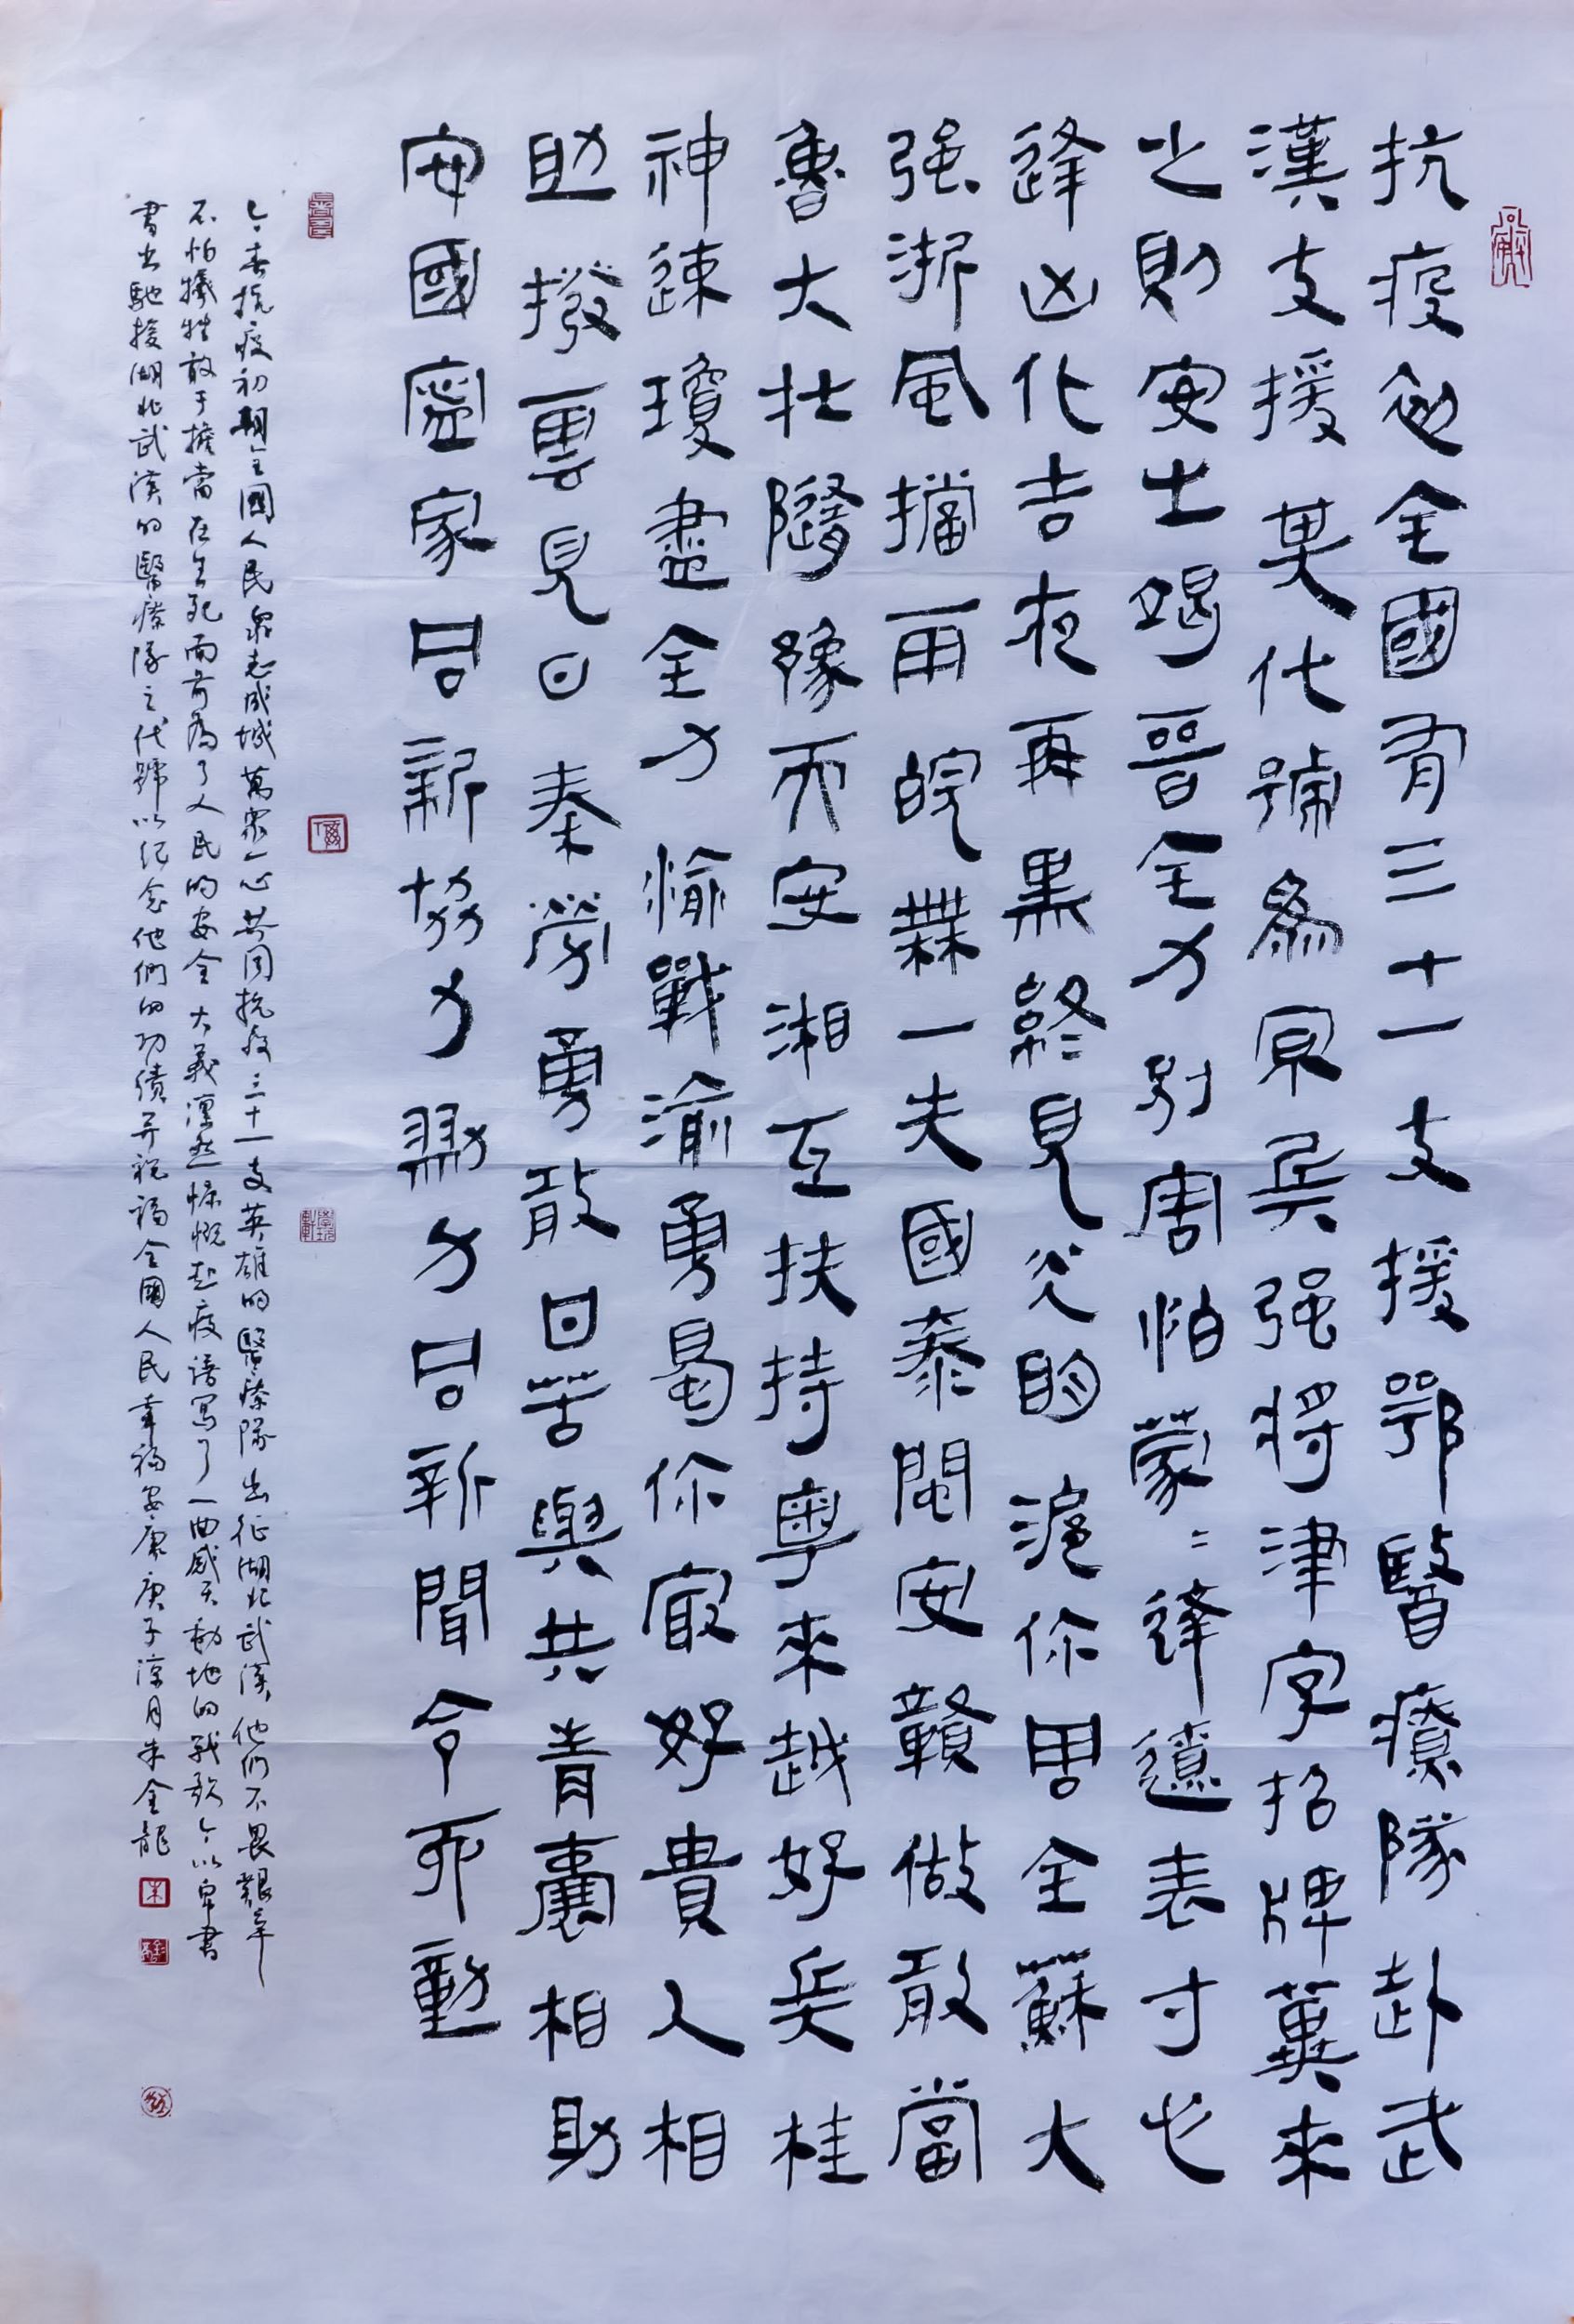 抗疫必全國有三十一支援鄂醫療隊赴武
漢支援其代號爲京兵强将津字招牌冀来
之則安士竭晋全力别害怕蒙二逢遼表寸心
逢凶化吉夜再黑終見炎的滬你周全蘇大
强浙風擋雨皖無一失國泰閩安贛做敢當
魯大壮隨豫而安湘互扶持粤來越好兵桂
神速瓊盡全力愉戰渝勇曷你最好貴人相
助撥雲見日秦勞勇敢日苦與共青囊相助
安國寧家同新協力勠力同新聞令而動
今春抗疫初期全國人民衆志成城萬衆一心共同抗疫三十一支英雄的醫療隊出征湖北武漢他們不畏艱辛
不怕犧牲敢于擔當在生死面前爲了人民的安全大義凛然慷慨赴疫譜寫了一曲感天動地的戰歌今以帛書
書出馳援湖北武漢的醫療隊之代號以纪念他們的功績并祝福全國人民幸福安康庚子凉月朱全龍